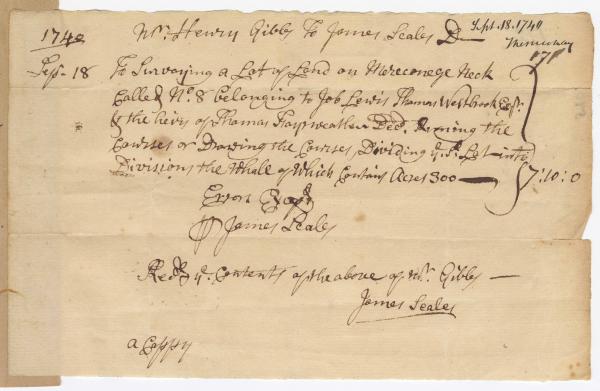 Sept. 18. 1740
1740 Mr. Henry Gibbs To James Scales Dr
Sept 18 To Surveying a Lot of Land on Mereconege Neck
Called No. 8 belonging to Job Lewis Thomas Westbrook Esqr.
& the heirs of Thomas Fayrweather Decd. Runing the
Courses or Drawing the Courses, Dividing ye. sd. Lot into
Divisions the Whole of Which Contains Acres 300 — 7:10:0
Errors Excepd
James Scales
Recd. ye. Contents of the above of Mr. Gibbs —
James Scales
a Coppy